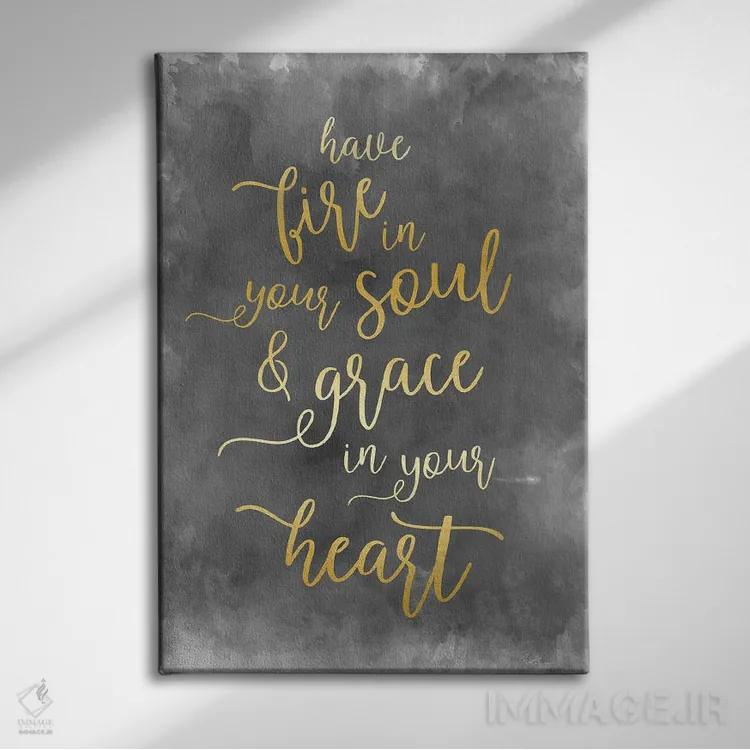 have
fire in
your soul
& grace
in your
heart
IMMAGE
IMMAGE.IR
IMMAGE.IR